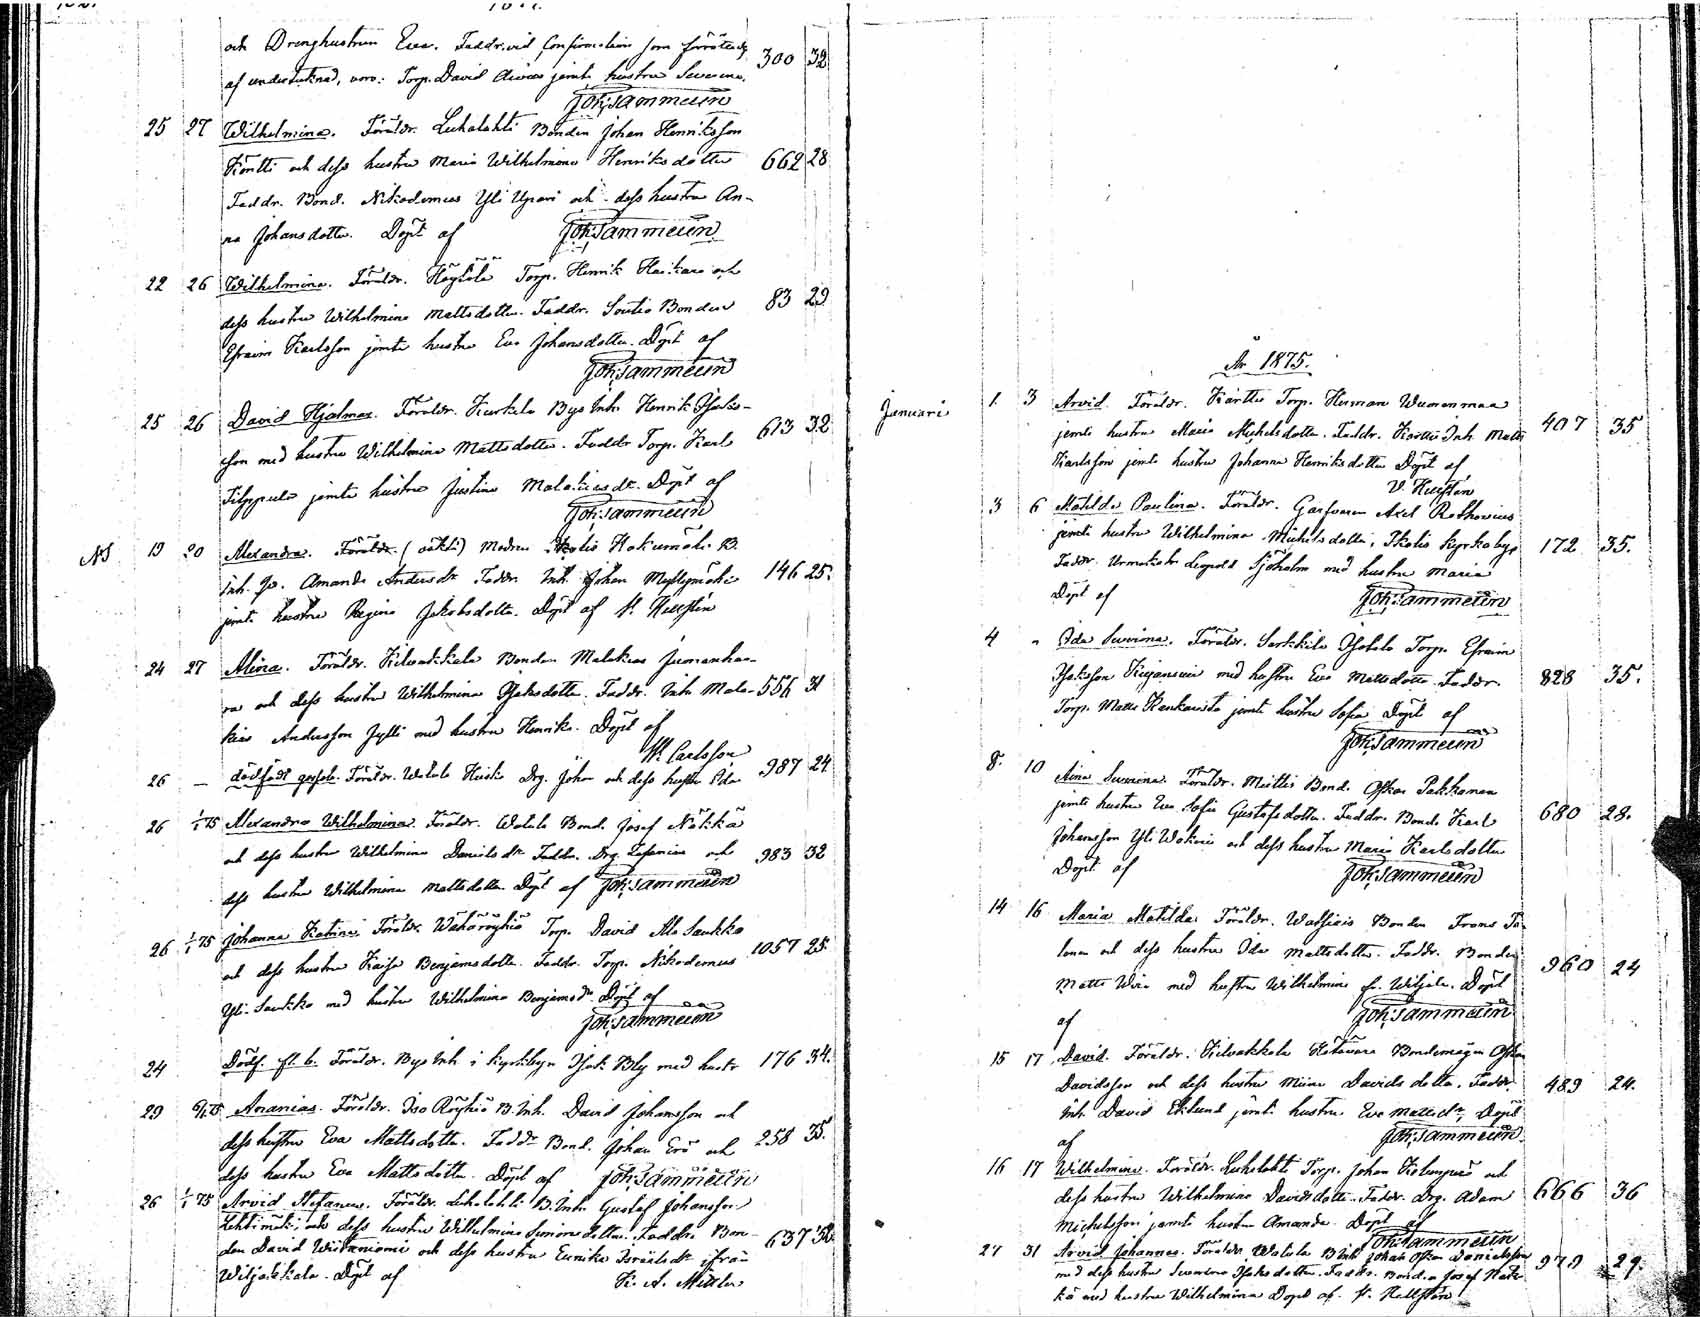 och Drenghustrun Eva. Faddr. vid Confirmation som förrättades
af undertecknad, voro: Torp. David jemte hustru Severina. 300 32
Joh: Sammeliin
25 27 Wilhelmina. Föräldr. Lukalahti Bonden Johan Henriksson
Köntti och dess hustru Maria Wilhelmina Henriksdotter 662 28
Faddr. Bond. Nikodemus Yli Upari och dess hustru An-
na Johansdotter. Döpt af Joh: Sammeliin
22 26 Wilhelmina. Föräldr. Höytölä Torp. Henrik Haikara och
dess hustru Wilhelmina Mattsdotter. Faddr. Soutio Bonden 83 29
Efraim Karlsson jemte hustru Eva Johansdotter. Döpt af
Joh: Sammeliin
25 26 David Hjalmar. Föräldr. Kurkela Bys Inh. Henrik Isaks-
son med hustru Wilhelmina Mattsdotter. Faddr Torp. Karl 613 32
Filppula jemte hustru Justina Malakiasdr. Döpt af
Joh: Sammeliin
NS 19 20 Alexandra. Föräldr. (oäkta) Modren Ikalis Hakumäki B.
inh. Jo. Amanda Andersdr Faddr. Inh. Johan Myllymäki 146 25.
jemte hustru Regina Jakobsdotter. Döpt af V. Hellstén
24 27 Miina. Föräldr. Kilvakkala Bonden Malakias Jumanha-
ra och dess hustru Wilhelmina Isaksdotter. Faddr. Inh Mala- 556 31
kias Andersson Jylli med hustru Henrika. Döpt af
W. Carlsson
26 — dödfödt gossb. Föräldr. Watula Heiska Drg. Johan och dess hustru Ida 987 24
26 1/1 75 Alexandra Wilhelmina. Föräldr. Watula Bond. Josef Näkkä
och dess hustru Wilhelmina Danielsdr Faddr. Drg. Zefanias och 983 32
dess hustru Wilhelmina Mattsdotter Döpt af Joh: Sammeliin
26 1/1 75 Johanna Katrina Föräldr. Wähäröyhiö Torp. David Ala Saukko
och dess hustru Kaisa Benjamsdotter. Faddr. Torp. Nikodemus 1057 25
Yli-Saukko med hustru Wilhelmina Benjamsdr. Döpt af
Joh: Sammeliin
24 Dödf. fl. b. Föräldr. Bys Inh i kyrkbyn Isak Bly med hustr 176 34.
29 6/1 75 Ananias. Föräldr. Iso Röyhiö B. Inh. David Johansson och
dess hustru Eva Mattsdotter. Faddr Bond. Johan Erö och 258 35.
dess hustru Eva Mattsdotter. Döpt af Joh: Sammeliin
26 1/1 75 Arvid Stefanus. Föräldr. Lukalahti B. Inh. Gustaf Johansson
Lehtimäki och dess hustru Wilhelmina Simonsdotter. Faddr. Bon- 637 32
den David Wiitaniemi och dess hustru Eunika Israelsdr ifrån
Wiljakkala. Döpt af K. A. Mellin
År 1875.
Januari 1. 3 Arvid. Föräldr. Kärtti Torp. Herman Wuorenmaa
jemte hustru Maria Michelsdotter. Faddr. Kärtti Inh. Matts 407 35
Karlsson jemte hustru Johanna Henriksdotter Döpt af
V. Hellsten
3 6 Matilda Paulina. Föräldr. Garfvaren Axel Rothovius
jemte hustru Wilhelmina Michelsdotter, Ikalis kyrkoby, 172 35.
Faddr Urmakar Leopold Sjöholm med hustru Maria
Döpt af Joh: Sammeliin
4 " Ida Severina. Föräldr. Sarkkila Isotalo Torp. Efraim
Isaksson Kiejansuu med hustru Eva Mattsdotter. Faddr. 828 35.
Torp. Matts Kankaristo jemte hustru Sofia Döpt af
Joh: Sammeliin
8. 10 Aina Severina. Föräldr. Miettis Bond. Oskar Pakkanen
jemte hustru Eva Sofia Gustafsdotter. Faddr. Bond. Karl 680 28.
Johansson Yli Wakeri och dess hustru Maria Karlsdotter
Döpt af Joh: Sammeliin
14 16 Maria Matilda. Föräldr. Watsiais Bonden Frans Ta-
lonen och dess hustru Ida Mattsdotter. Faddr. Bonden 960 24
Matts Wiri med hustru Wilhelmina fr. Wiljak. Döpt
af Joh: Sammeliin
15 17 David. Föräldr. Kilvakkala Bondemågen Oskar
Davidsson och dess hustru Miina Davidsdotter. Faddr. 489 24.
Inh. David Eklund jemte hustru Eva Mattsdr. Döpt
af Joh: Sammeliin
16 17 Wilhelmina. Föräldr. Lukalahti Torp. Johan Kolunperä och
dess hustru Wilhelmina Davidsdotter. Faddr. Drg. Adam 666 36
Michelsson jemte hustru Amanda. Döpt af
Joh: Sammeliin
27 31 Arvid Johannes. Föräldr. Watula B Inh Johan Oskar Danielsson
med dess hustru Severina Isaksdotter. Faddr. Bonden Josef Näk- 979 29.
kä med hustru Wilhelmina Döpt af V. Hellstén